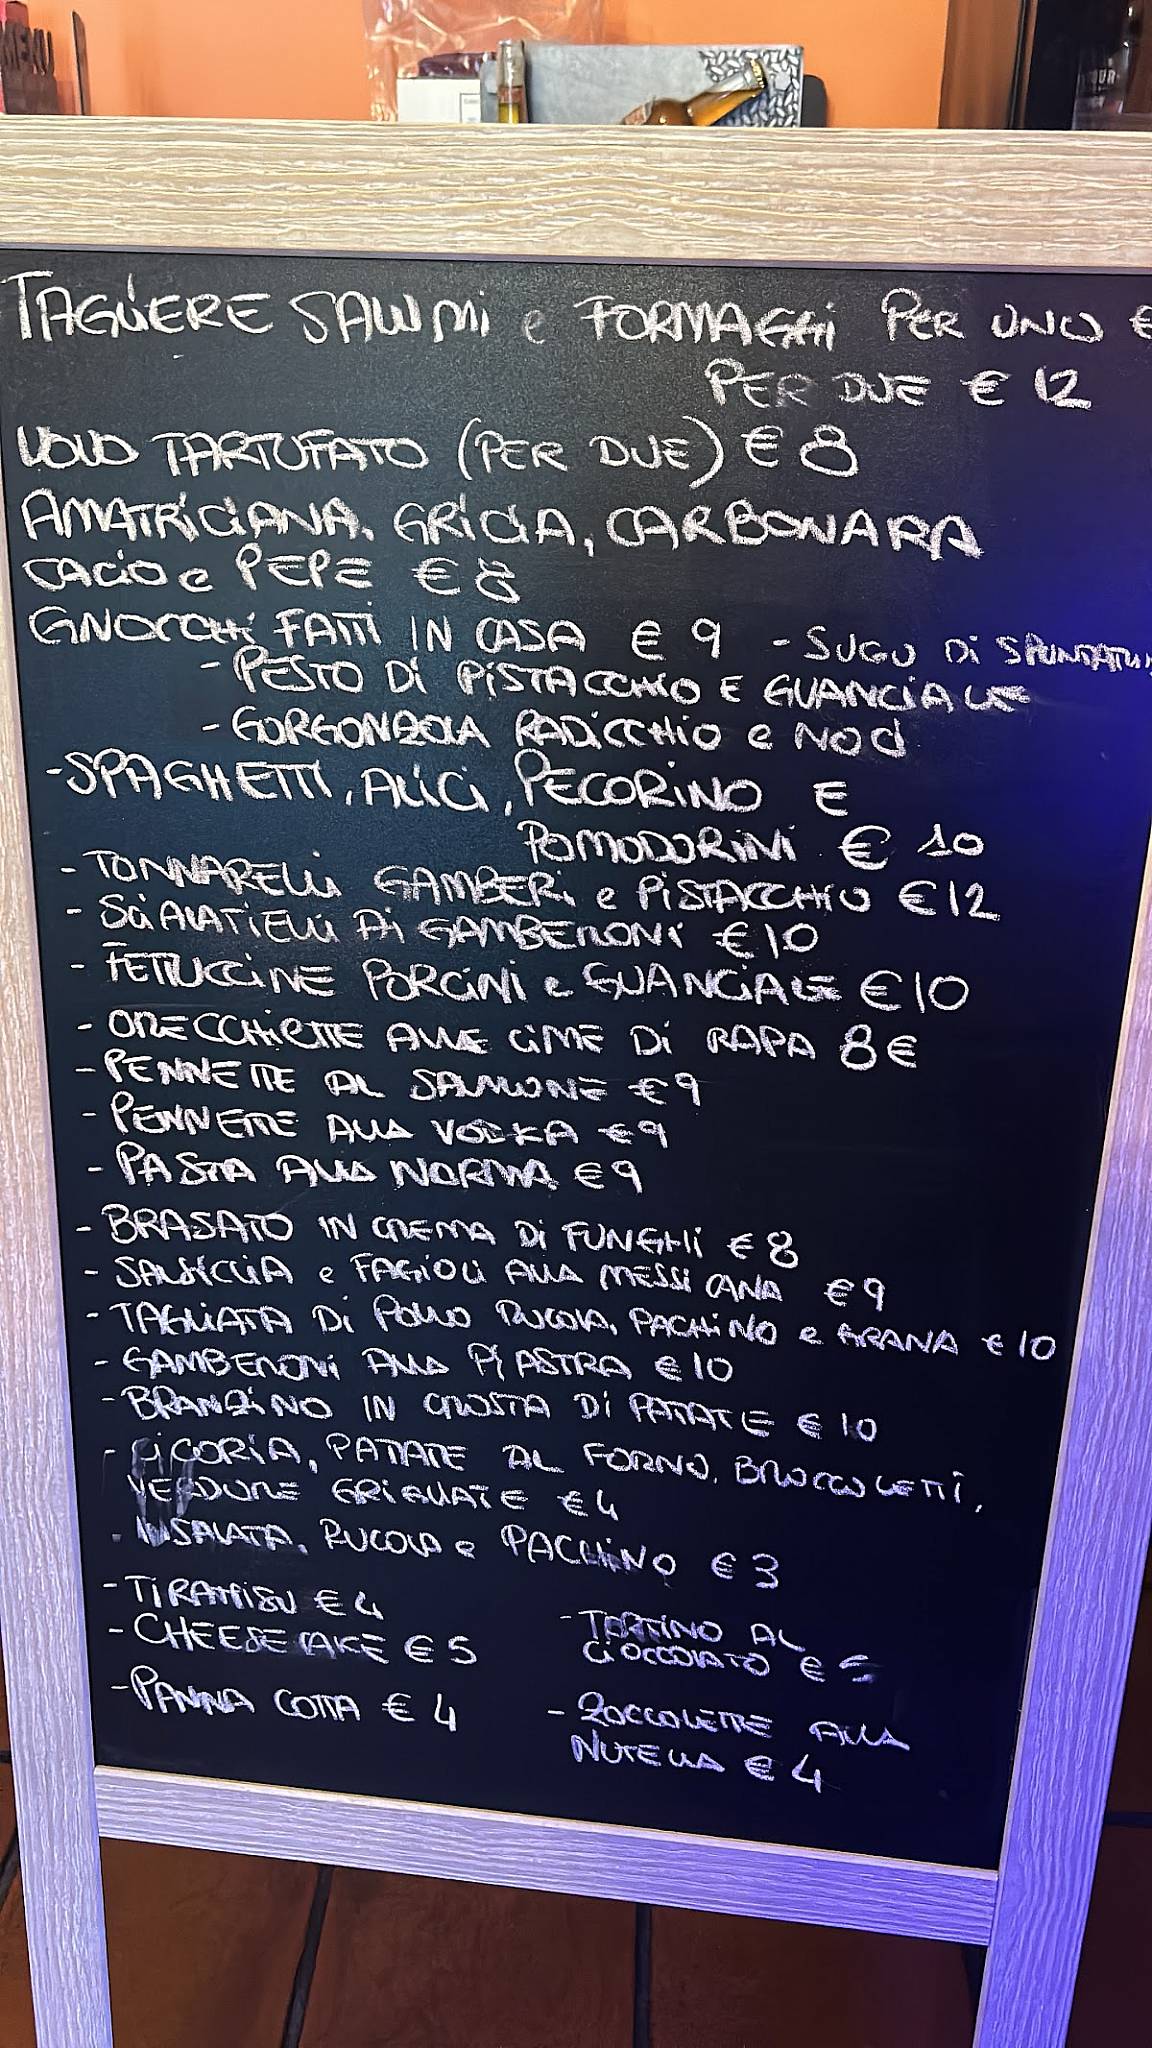 MENU
TAGLIERE SALUMI e FORMAGGI PER UNO €
PER DUE € 12
UOVO TARTUFATO (PER DUE) € 8
AMATRICIANA, GRICIA, CARBONARA
CACIO e PEPE € 8
GNOCCHI FATTI IN CASA € 9 - SUGO DI SPUNTATU
- PESTO DI PISTACCHIO E GUANCIALE
- GORGONZOLA RADICCHIO e NOCI
- SPAGHETTI, ALICI, PECORINO E
POMODORINI € 10
- TONNARELLI GAMBERI e PISTACCHIO € 12
- SCIALATIELLI AI GAMBERONI € 10
- FETTUCCINE PORCINI e GUANCIALE € 10
- ORECCHIETTE ALLE CIME DI RAPA 8 €
- PENNETTE AL SALMONE € 9
- PENNETTE ALLA VODKA € 9
- PASTA ALLA NORMA € 9
- BRASATO IN CREMA DI FUNGHI € 8
- SALSICCIA e FAGIOLI ALLA MESSICANA € 9
- TAGLIATA DI POLLO RUCOLA, PACHINO e GRANA € 10
- GAMBERONI ALLA PIASTRA € 10
- BRANZINO IN CROSTA DI PATATE € 10
- CICORIA, PATATE AL FORNO, BROCCOLETTI,
VERDURE GRIGLIATE € 4
- INSALATA, RUCOLA e PACHINO € 3
- TIRAMISU € 4
- CHEESECAKE € 5
- PANNA COTTA € 4
- TORTINO AL
CIOCCOLATO € 5
- ZOCCOLETTE ALLA
NUTELLA € 4